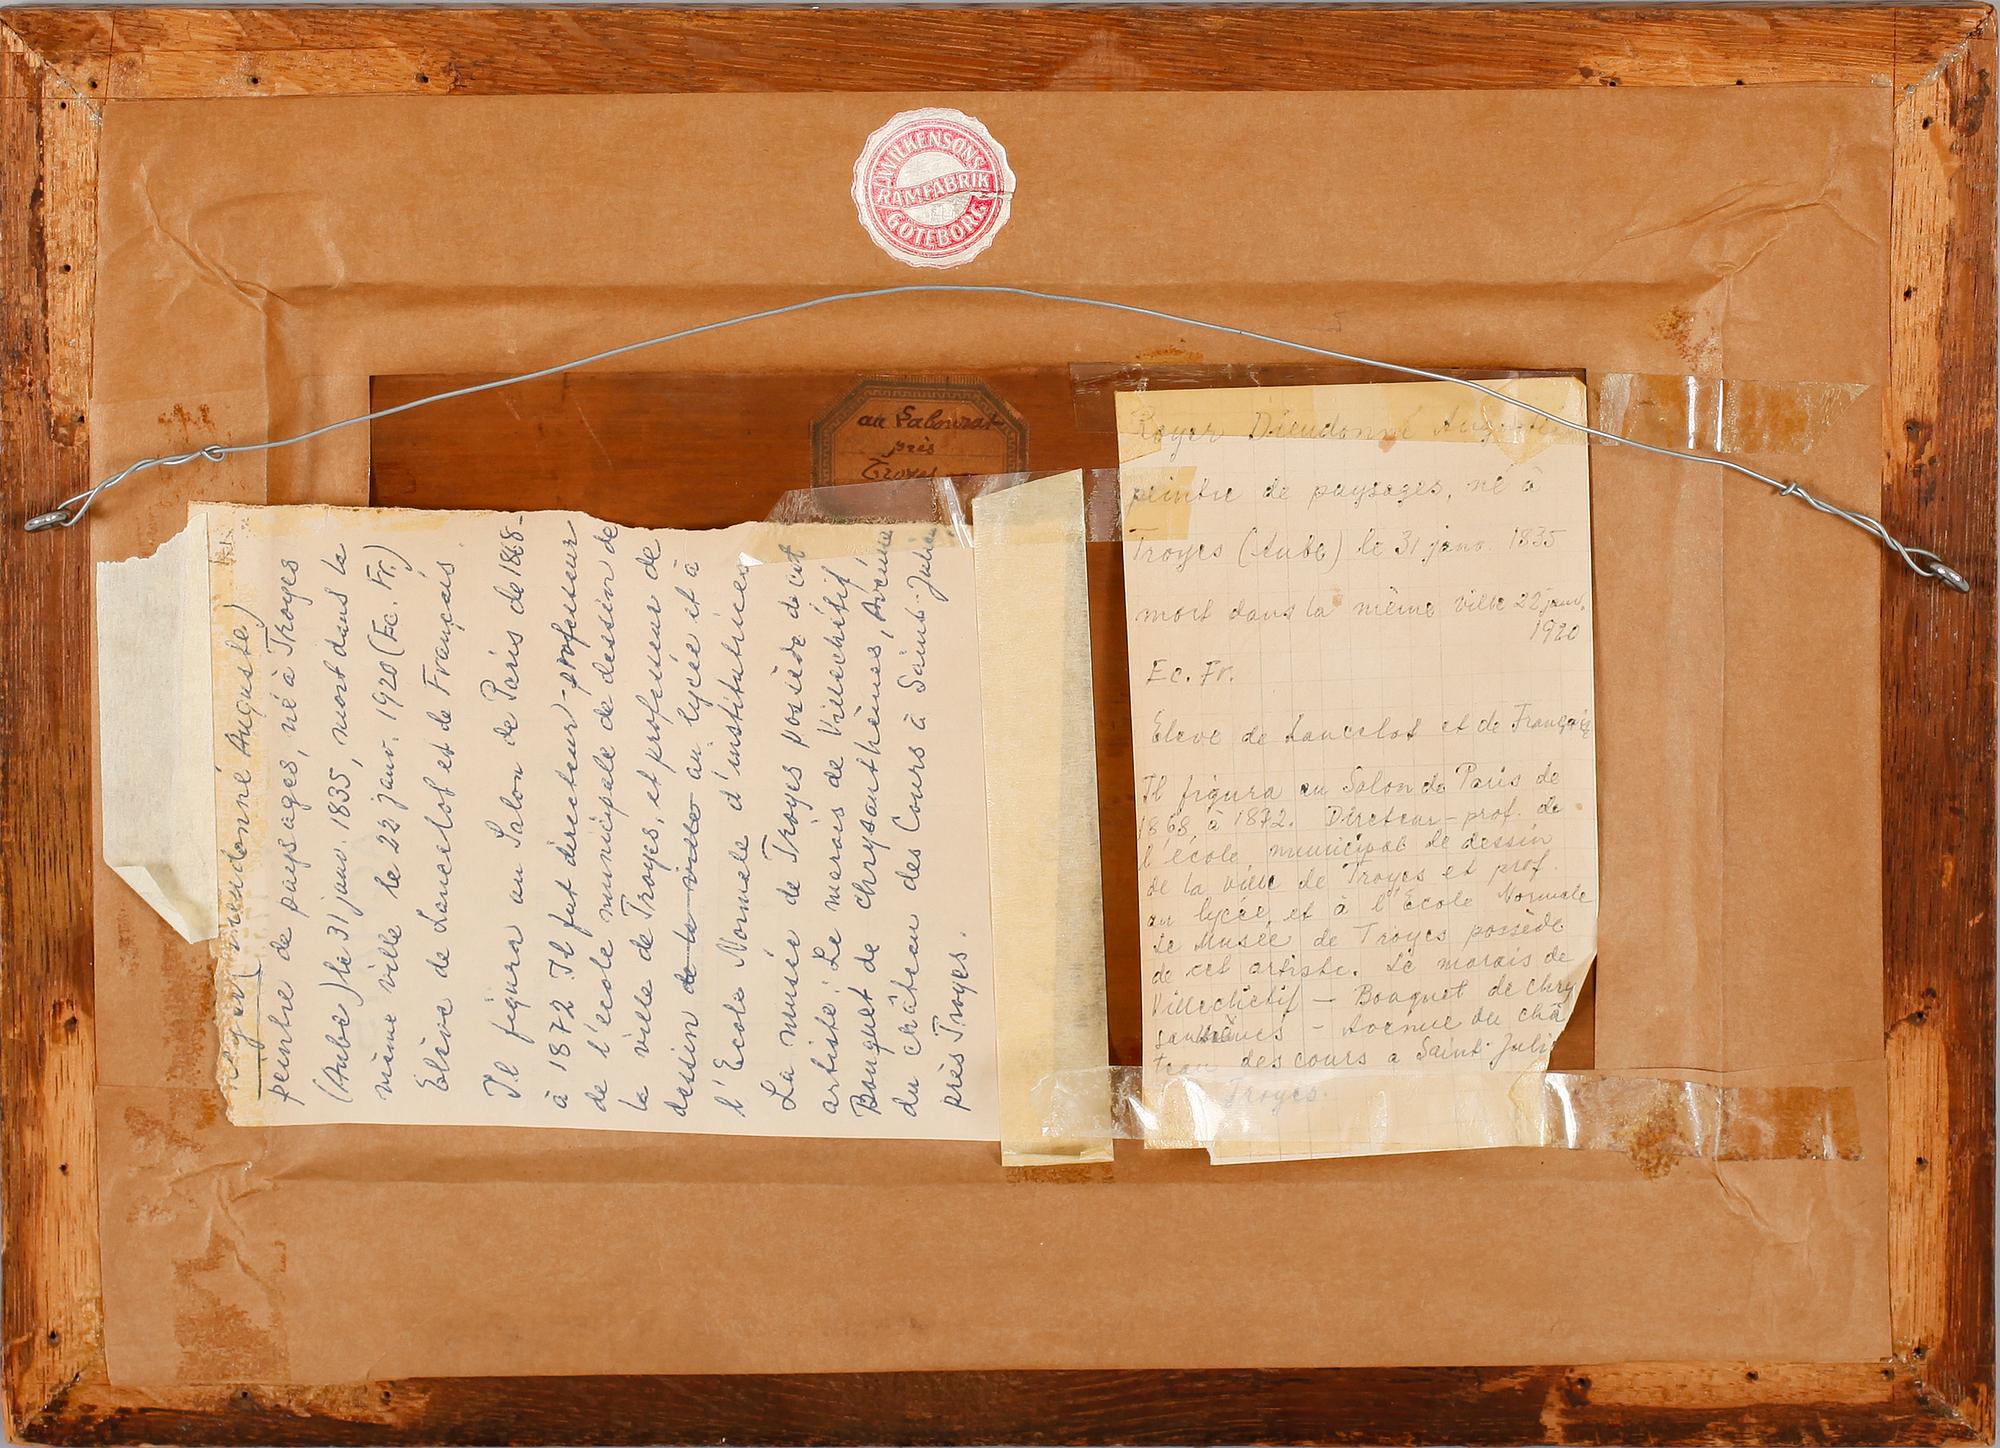 WILKENSONS
RAMFABRIK
GÖTEBORG
au
près
Troyes
Royer (Dieudonné Auguste)
peintre de paysages, né à Troyes
(Aube) le 31 janv. 1835, mort dans la
même ville le 22 janv. 1920 (Ec. Fr.)
Elève de Lancelot et de Français
Il figura au Salon de Paris de 1868-
à 1872. Il fut directeur-professeur
de l'école municipale de dessin de
la ville de Troyes, et professeur de
dessin de la ville au lycée et à
l'Ecole Normale d'institutrices
La musée de Troyes posiède de cet
artiste: Le marais de Villechétif
Bouquet de chrysanthèmes, Avenue
du château des Cours à Saint-Julien
près Troyes.
Royer Dieudonné Augustin
peintre de paysages, né à
Troyes (Aube) le 31 janv 1835
mort dans la même ville 22 janv.
1920
Ec. Fr.
Eleve de Lancelot et de Français
Il figura au Salon de Paris de
1868 à 1872. Directeur-prof. de
l'école municipal de dessin
de la ville de Troyes et prof.
au lycée et à l'Ecole Normale
Le Musée de Troyes possède
de cet artiste. Le marais de
Villechetif - Bouquet de chry
santhèmes - Avenue du châ
teau des cours a Saint-Juli
Troyes.